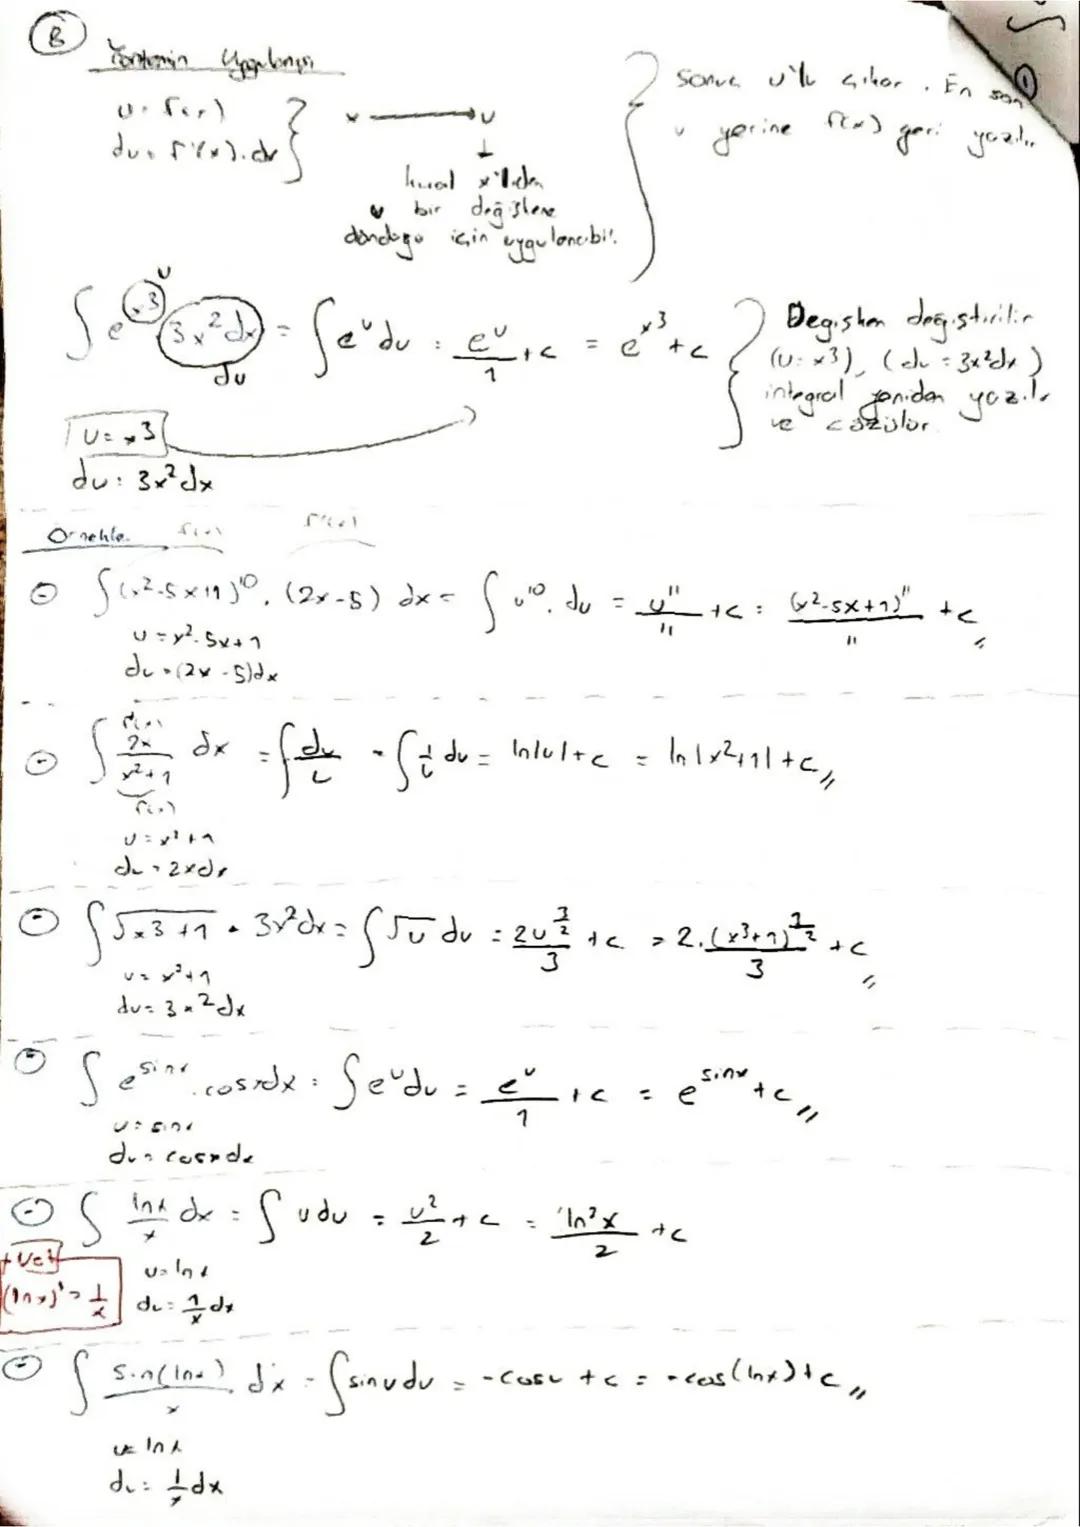 B
Yöntemin Uygulanışı
u = f(x)
du = f'(x).dx
x → u
↓
kural x'liden
u bir değişkene
döndüğü için uygulanabilir.
Sonuç u'lu çıkar. En son
u yerine f(x) geri yazılır
1
∫ e^x3 3x² dx = ∫ e^u du = e^u/1 + c = e^x3 + c
u
du
u = x3
du = 3x²dx
Değişken değiştirilir
(u = x3), (du = 3x²dx)
integral yeniden yazılır
ve çözülür.
Örnekle.
f(x) f'(x)
- ∫ (x²-5x+1)^10 . (2x-5) dx = ∫ u^10 . du = u^11/11 + c = (x²-5x+1)^11/11 + c //
u = x²-5x+1
du = (2x-5)dx
f'(x)
- ∫ 2x/x²+1 dx = ∫ du/u = ∫ 1/u du = ln|u|+c = ln|x²+1|+c //
f(x)
u = x²+1
du = 2xdx
- ∫ √x3+1 . 3x²dx = ∫ √u du = 2u^3/2/3 + c = 2.(x3+1)^3/2/3 + c //
u = x³+1
du = 3x²dx
- ∫ e^sinx . cosxdx = ∫ e^u du = e^u/1 + c = e^sinx + c //
u = sinx
du = cosxdx
- ∫ lnx/x dx = ∫ udu = u²/2 + c = ln²x/2 + c
(lnx)' = 1/x
u = lnx
du = 1/x dx
- ∫ sin(lnx)/x dx = ∫ sinudu = -cosu + c = -cos(lnx)+c //
u = lnx
du = 1/x dx